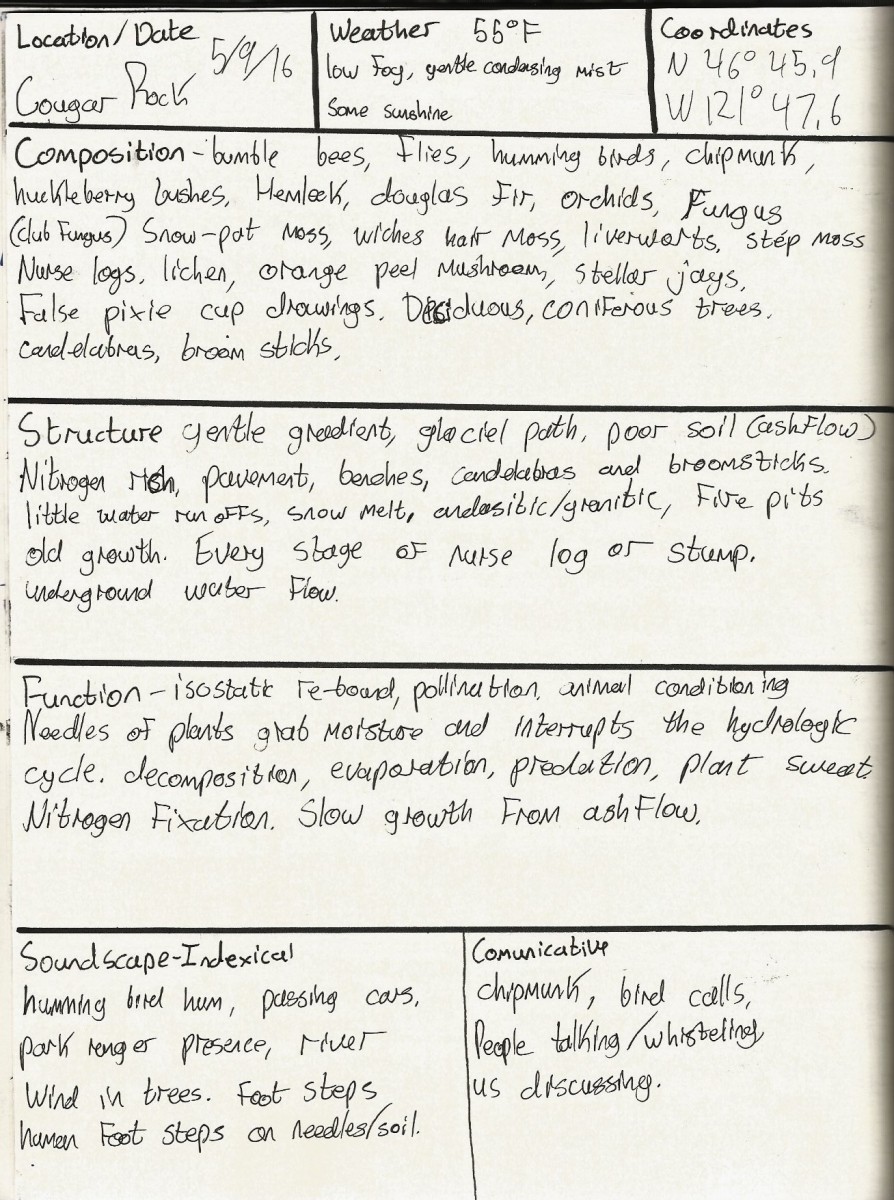 Location/Date
5/9/16
Cougar Rock
Weather 55°F
low Fog, gentle condensing mist
Some sunshine
Coordinates
N 46° 45,9
W 121° 47,6
Composition - bumble bees, flies, humming birds, chipmunk,
huckleberry bushes, Hemlock, douglas Fir, orchids, Fungus
(club Fungus) Snow-pat moss, wiches hair moss, liverworts, step moss
Nurse logs, lichen, orange peel mushroom, stellar jays,
False pixie cup drawings. Deciduous, coniferous trees.
candelabras, broom sticks,
Structure gentle greedient, glaciel path, poor soil (ashflow)
Nitrogen rich, pavement, benches, candelabras and broomsticks.
little water run offs, snow melt, andasitic/granitic, Fire pits
old growth. Every stage of nurse log or stump.
underground water flow.
Function - isostatic re-bound, pollination, animal conditioning
Needles of plants grab moisture and interrupts the hydrologic
cycle. decomposition, evaporation, predation, plant sweat.
Nitrogen Fixation. Slow growth From ashflow.
Soundscape-Indexical
humming bird hum, passing cars,
park renger presence, river
Wind in trees. Foot steps
human Foot steps on needles/soil.
Comunicative
chipmunk, bird calls,
People talking/whisteling
us discussing.